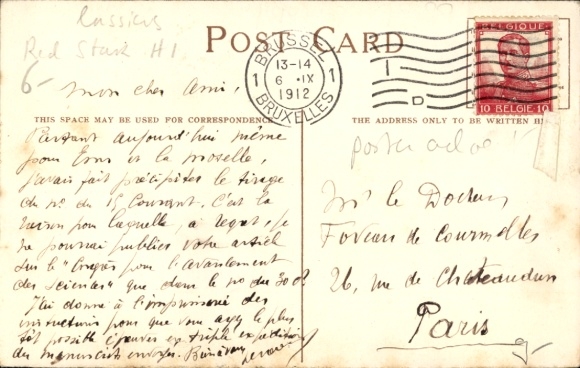 Cassiers
Red Star H1
6-
POST CARD
BRUSSEL
1 13-14 1
6 IX
1912
BRUXELLES
D
BELGIQUE
10 BELGIE 10
Mon cher Ami,
THIS SPACE MAY BE USED FOR CORRESPONDENCE
THE ADDRESS ONLY TO BE WRITTEN HERE
Partant aujourd'hui même
pour Ems et la Moselle,
j'avais fait précipiter le tirage
du no du 15 Courant. C'est la
raison pour laquelle, à regret, je
ne pourrai publier votre article
sur le "Congrès pour l'avancement
des Sciences" que dans le no du 30 ct
J'ai donné à l'imprimerie des
instructions pour que vous ayez le plus
tôt possible épreuves en triple expédition
du manuscrit envoyé. Bien à vous
poster
Mr le Docteur
Foveau de Courmelles
26, rue de Châteaudun
Paris